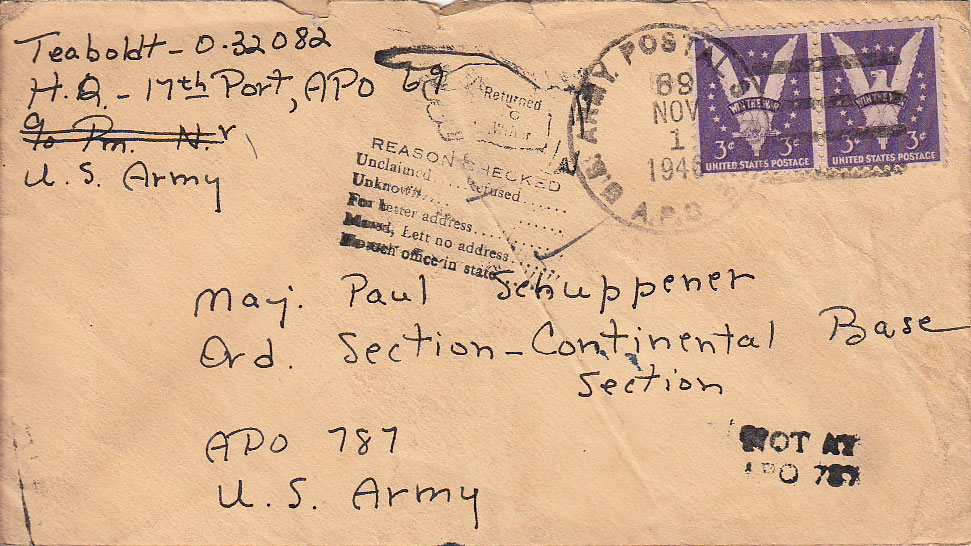 Teaboldt - O-32082
H.Q. - 17th Port, APO 69
c/o Pm. N.Y
U.S. Army
Returned
Writer
REASON CHECKED
Unclaimed .... Refused ......
Unknown
For better address
Moved, Left no address
No such office in state
U.S. ARMY POSTAL
69
NOV
1
1946
A.P.O.
WIN THE WAR
3¢ 3¢
UNITED STATES POSTAGE
WIN THE WAR
3¢ 3¢
UNITED STATES POSTAGE
Maj. Paul Schuppener
Ord. Section - Continental Base
Section
APO 787
U.S. Army
NOT AT
APO 787